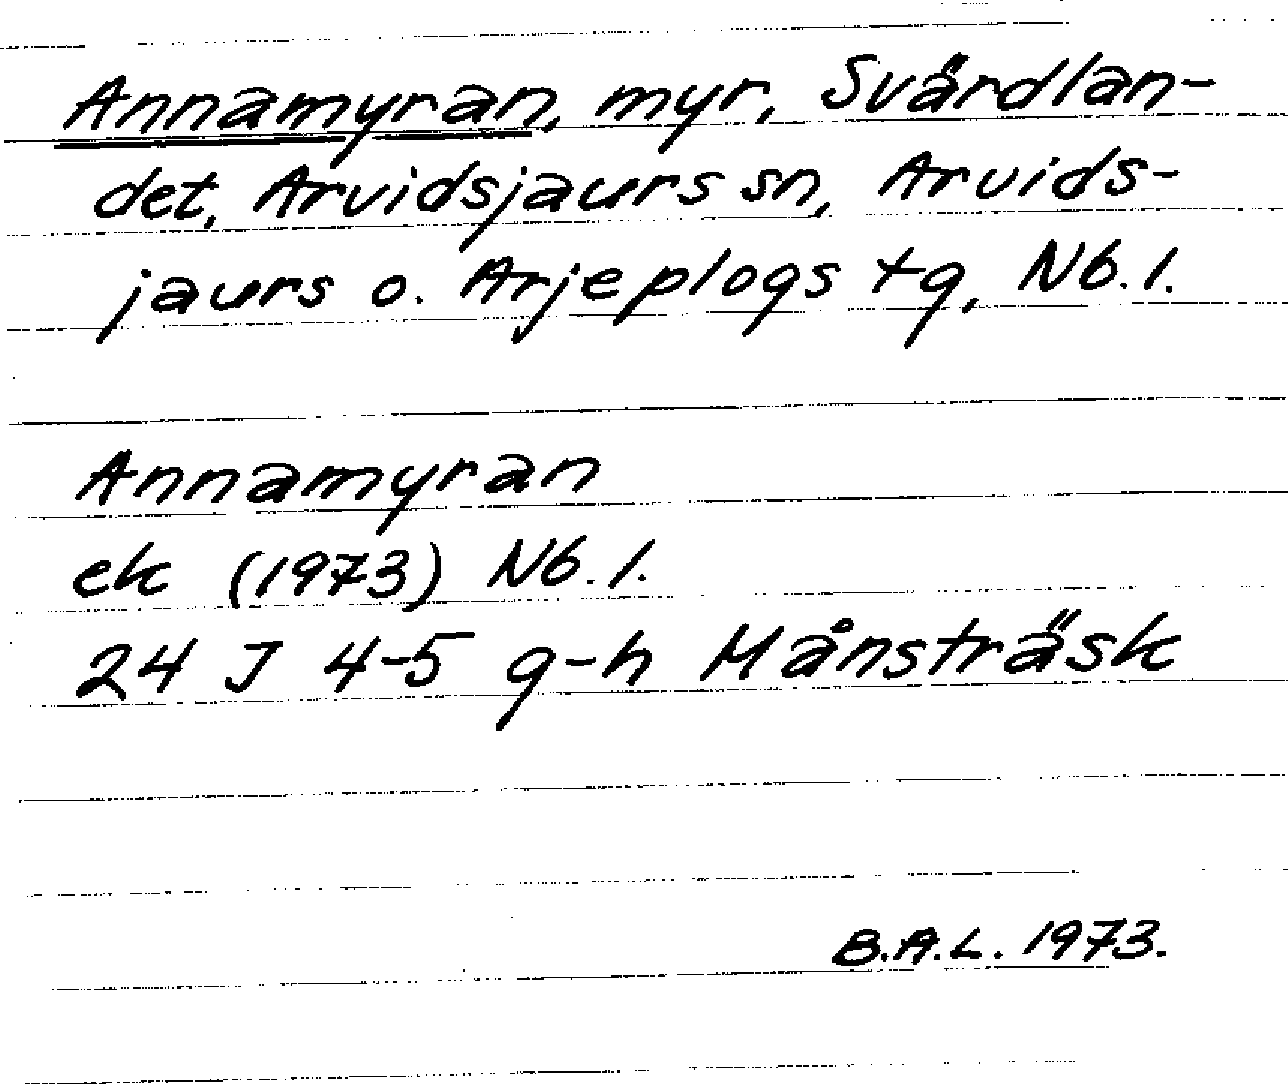 Annamyran, myr, Svärdlan-
det, Arvidsjaurs sn, Arvids-
jaurs o. Arjeplogs tg, Nb. l.
Annamyran
ek (1973) Nb. l.
24 J 4-5 g-h Månsträsk
B.A.L. 1973.